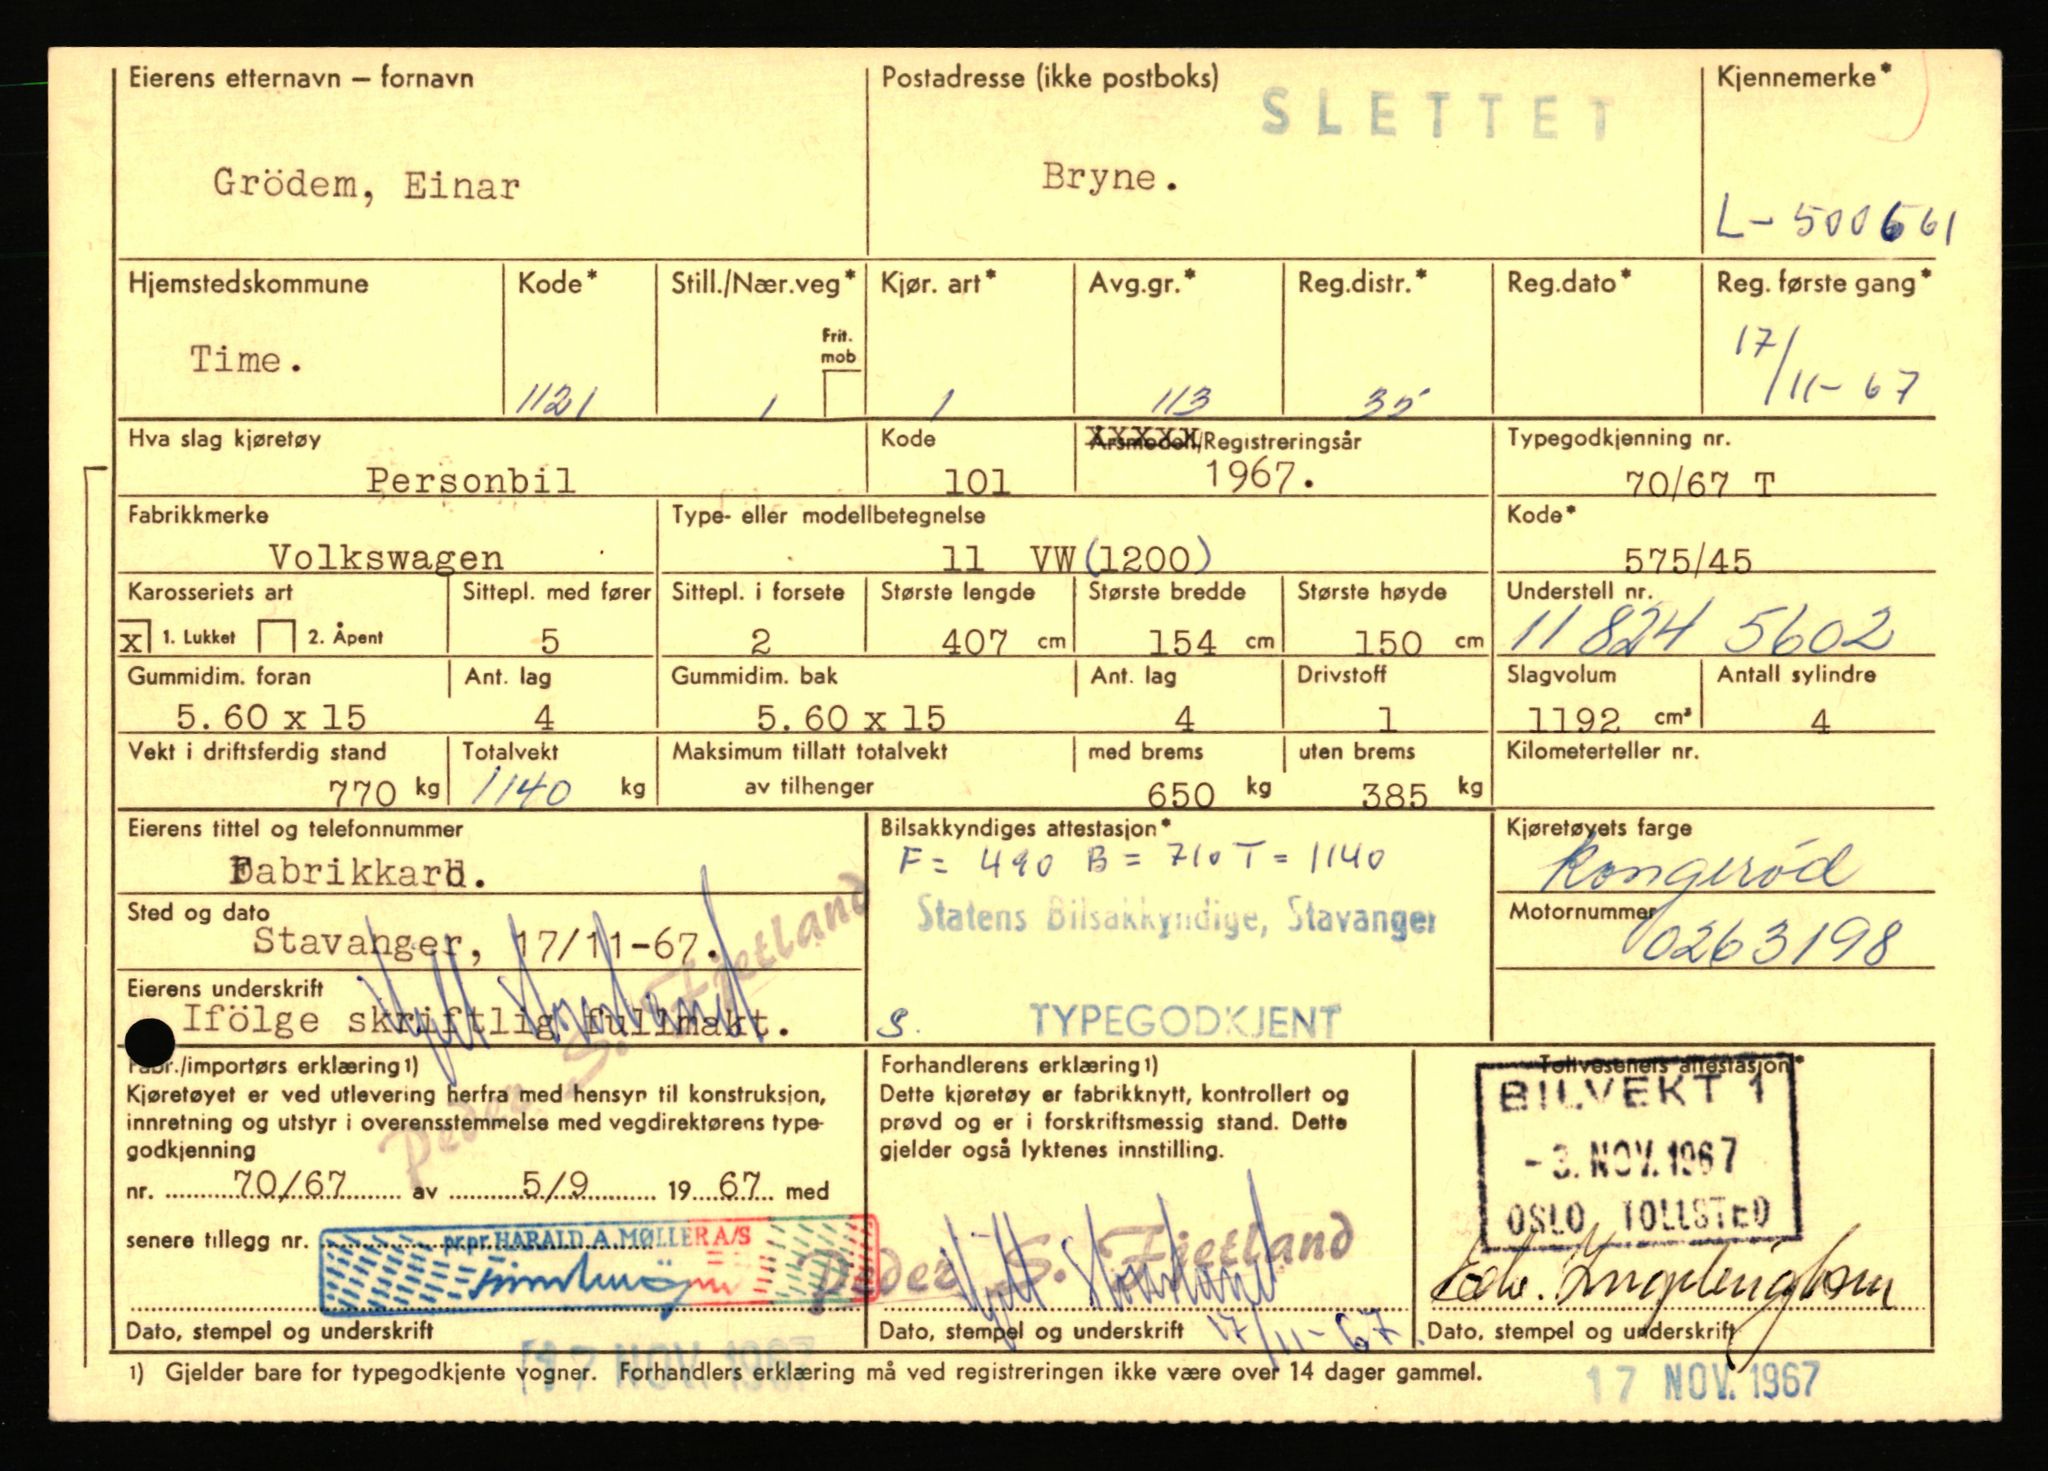 Eierens etternavn – fornavn
Postadresse (ikke postboks)
Kjennemerke*
SLETTET
Grödem, Einar
Bryne.
L- 500661
Hjemstedskommune
Kode*
Still./Nær.veg*
Kjør. art*
Avg.gr.*
Reg.distr.*
Reg.dato*
Reg. første gang*
Frit. mob
Time.
1121
1
1
113
35
17/11-67
Hva slag kjøretøy
Kode
Årsmodell/Registreringsår
Typegodkjenning nr.
Personbil
101
1967.
70/67 T
Fabrikkmerke
Type- eller modellbetegnelse
Kode*
Volkswagen
11 VW (1200)
575/45
Karosseriets art
Sittepl. med fører
Sittepl. i forsete
Største lengde
Største bredde
Største høyde
Understell nr.
x 1. Lukket 2. Åpent
5
2
407 cm
154 cm
150 cm
11 824 5602
Gummidim. foran
Ant. lag
Gummidim. bak
Ant. lag
Drivstoff
Slagvolum
Antall sylindre
5.60 x 15
4
5.60 x 15
4
1
1192 cm³
4
Vekt i driftsferdig stand
Totalvekt
Maksimum tillatt totalvekt
med brems
uten brems
Kilometerteller nr.
770 kg
1140 kg
av tilhenger
650 kg
385 kg
Eierens tittel og telefonnummer
Bilsakkyndiges attestasjon*
Kjøretøyets farge
Fabrikkarb.
F = 490 B = 710 T = 1140
Kongerød
Sted og dato
Statens Bilsakkyndige, Stavanger
Motornummer
Stavanger, 17/11-67.
0263198
Eierens underskrift
Ifölge skriftlig fullmakt.
Peder S. Fjetland
S.
TYPEGODKJENT
Fabr./importørs erklæring 1)
Kjøretøyet er ved utlevering herfra med hensyn til konstruksjon,
innretning og utstyr i overensstemmelse med vegdirektørens type-
godkjenning
nr. 70/67 av 5/9 1967 med
senere tillegg nr.
pr.pr. HARALD A. MØLLER A/S
Dato, stempel og underskrift
17 NOV. 1967
Forhandlerens erklæring 1)
Dette kjøretøy er fabrikknytt, kontrollert og
prøvd og er i forskriftsmessig stand. Dette
gjelder også lyktenes innstilling.
Peder S. Fjetland
Dato, stempel og underskrift 17/11-67.
Tollvesenets attestasjon*
BILVEKT 1
-3. NOV. 1967
OSLO TOLLSTED
Dato, stempel og underskrift
1) Gjelder bare for typegodkjente vogner. Forhandlers erklæring må ved registreringen ikke være over 14 dager gammel.
17 NOV. 1967